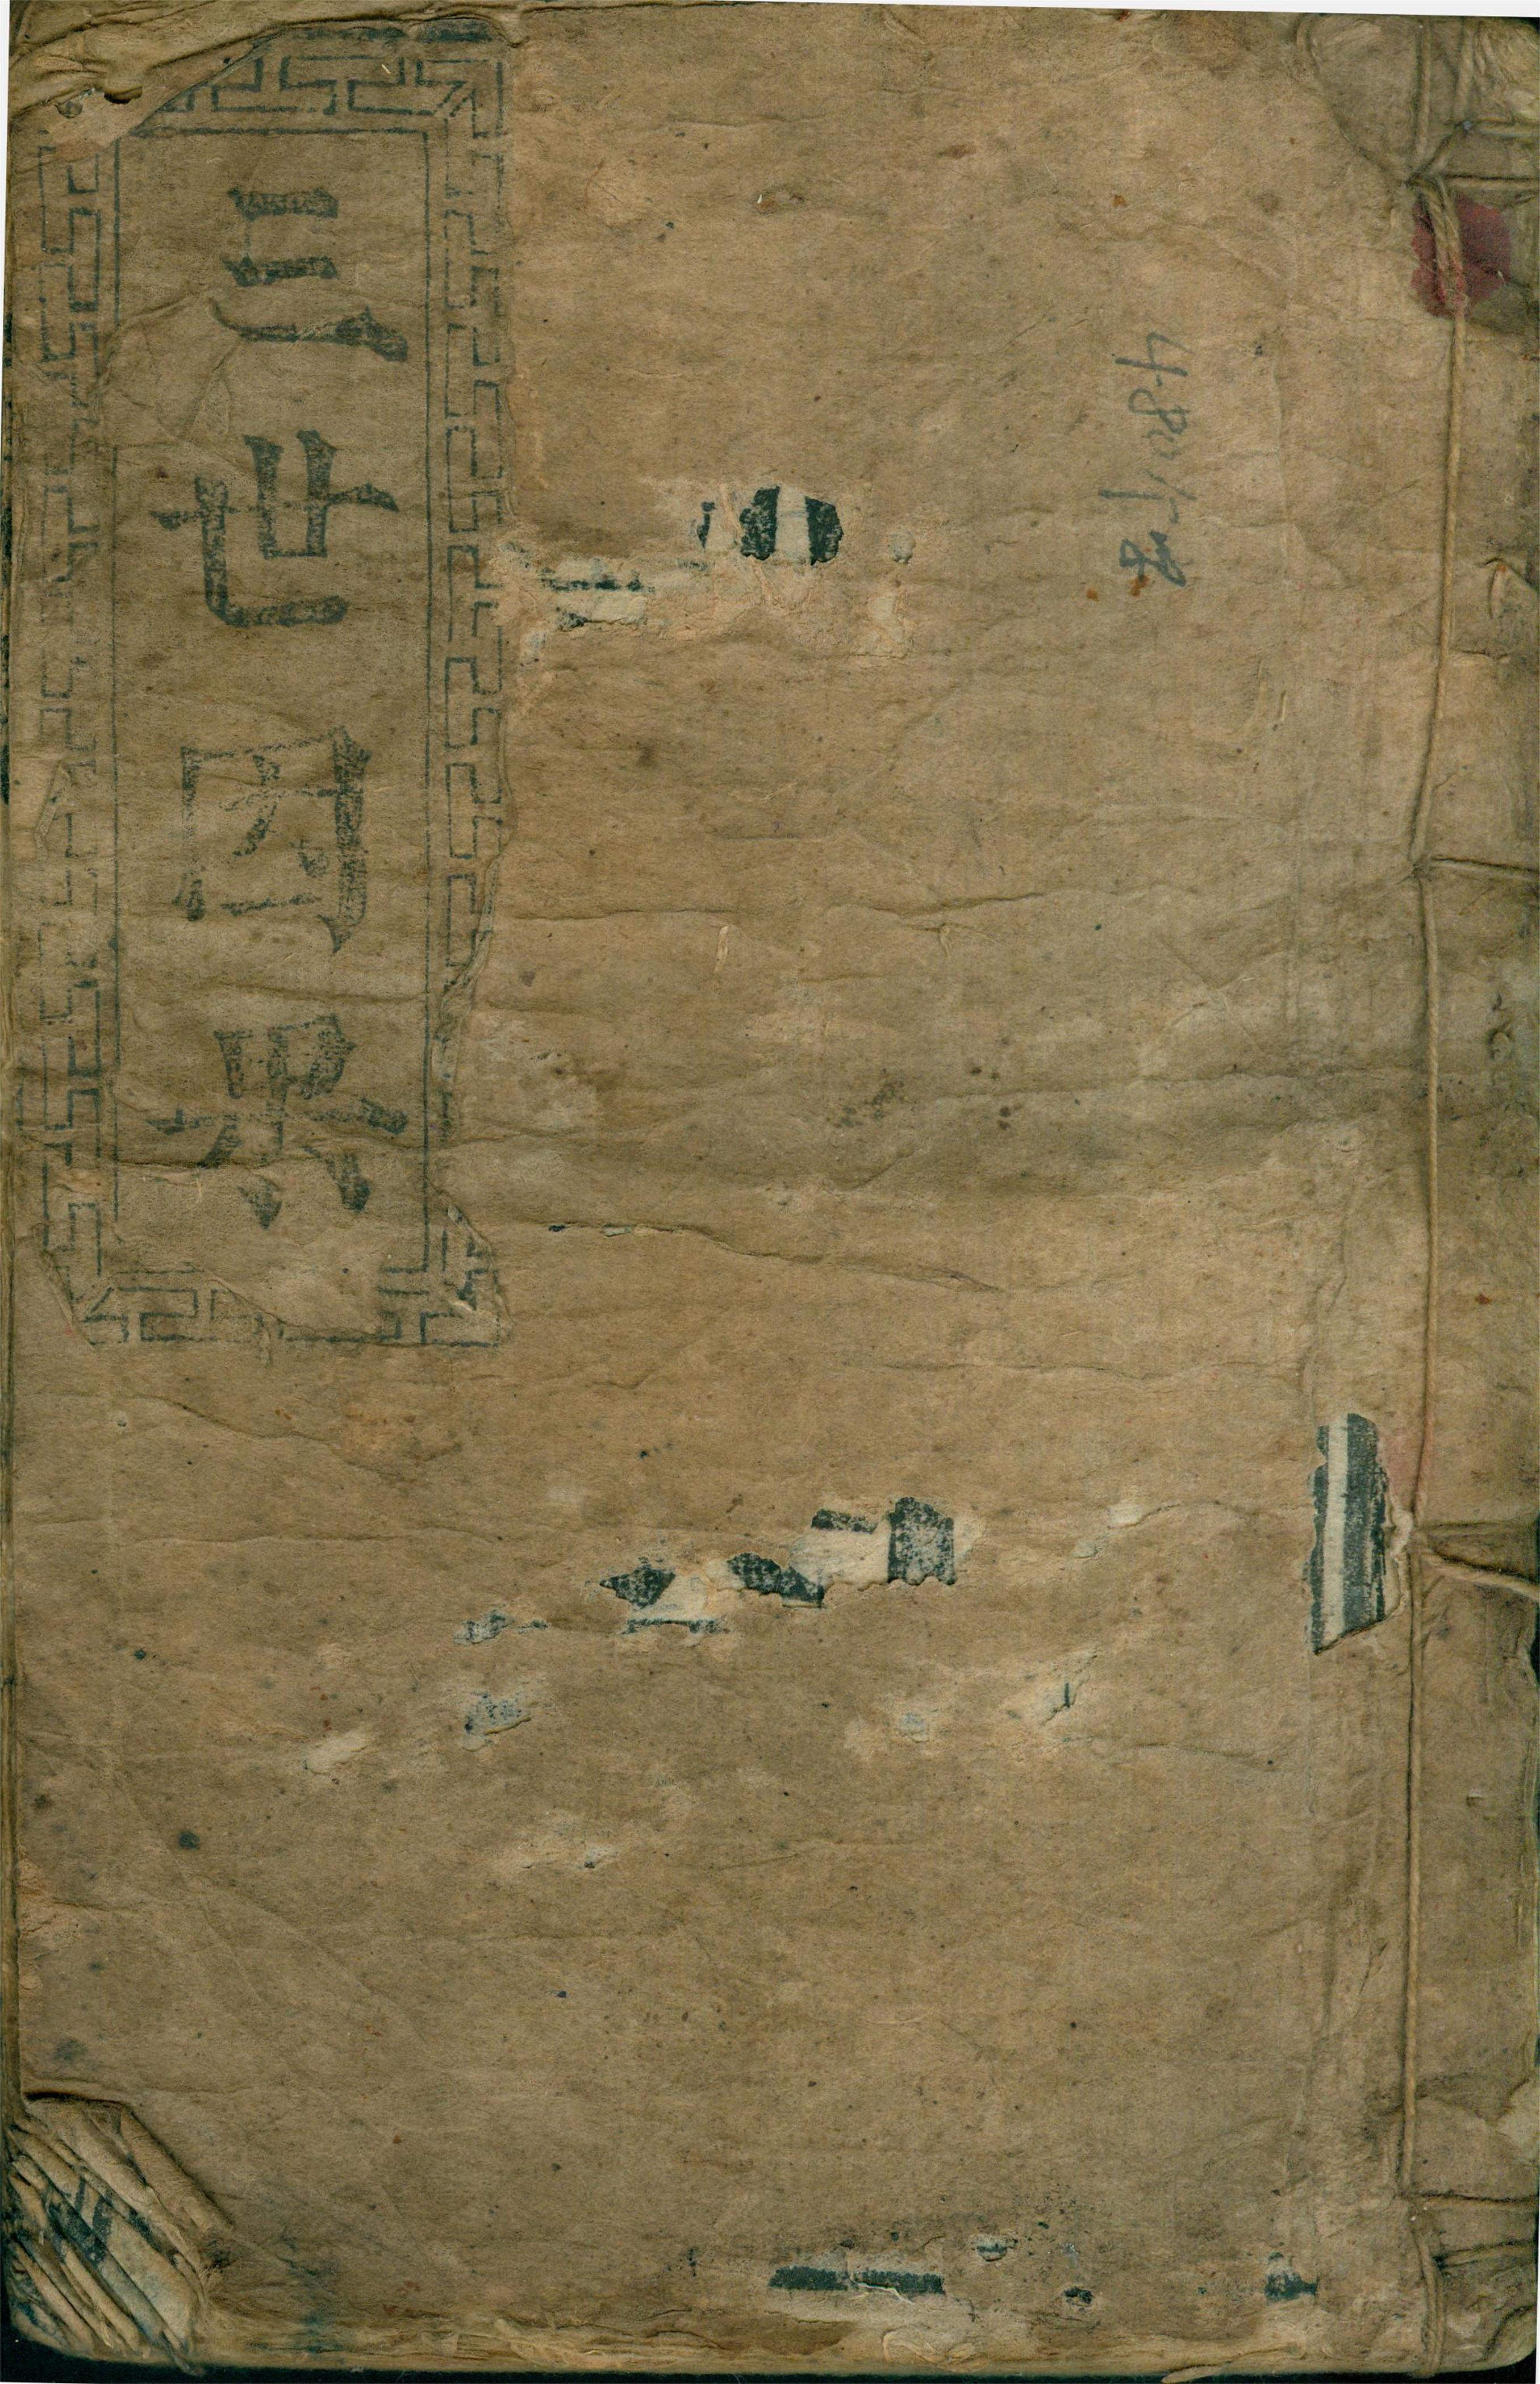 三世因果